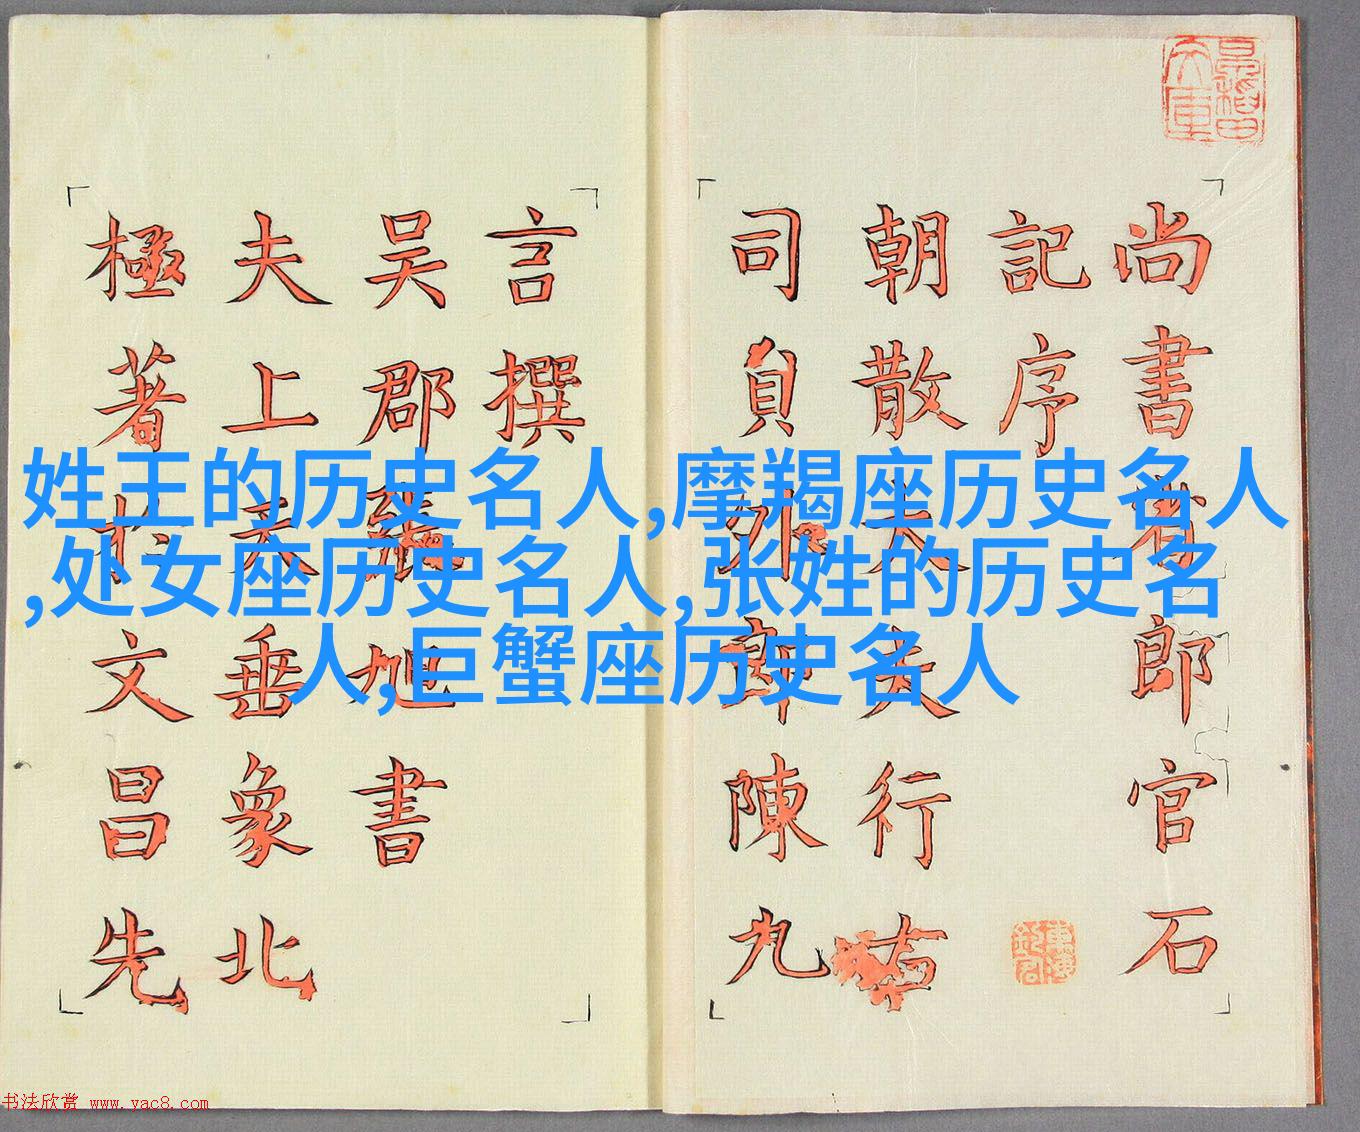 姓王的历史名人,摩羯座历史名人
,处女座历史名人,张姓的历史名
人,巨蟹座历史名人
尚書省郎官石
記序
朝散大夫行右
司員外郎陳九
言撰
吴郡張旭書
夫上天垂象北
極著於文昌先
书法欣赏 www.yac8.com